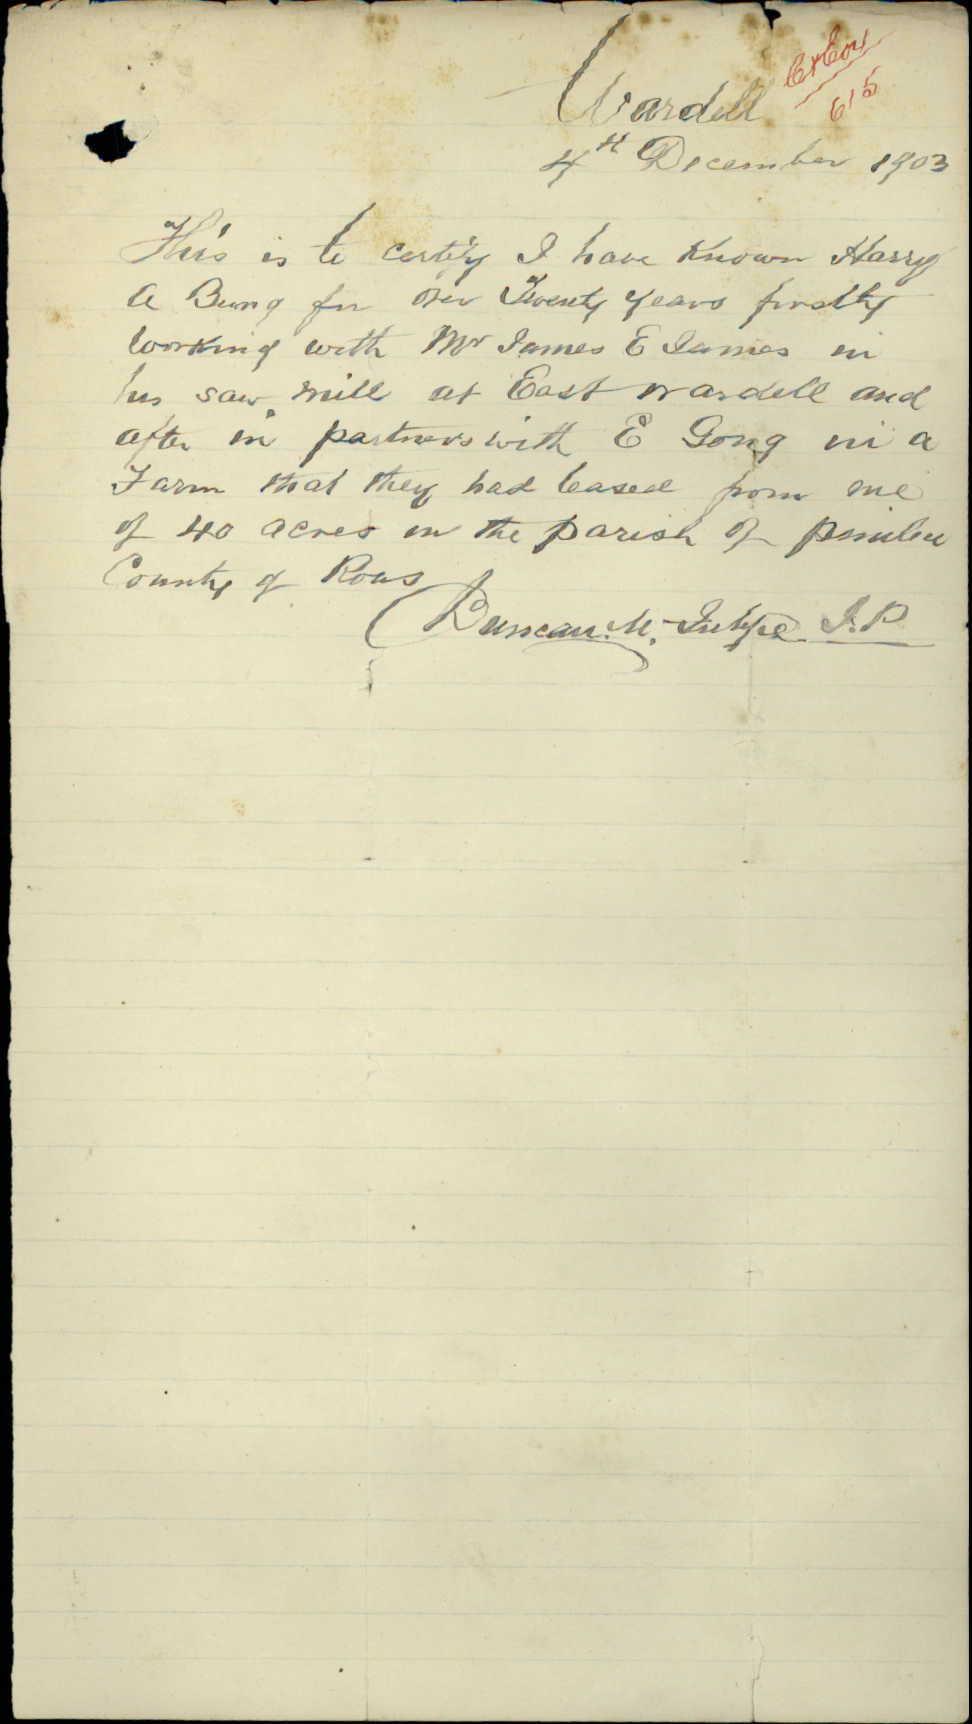 Wardell
615
4th December 1903
This is to certify I have Known Harry
A Bung for over Twenty years firstly
working with Mr James E James in
his saw mill at East wardell and
after in partners with E Gong in a
Farm that they had leased from me
of 40 acres in the parish of
County of Rous
Duncan M. J.P